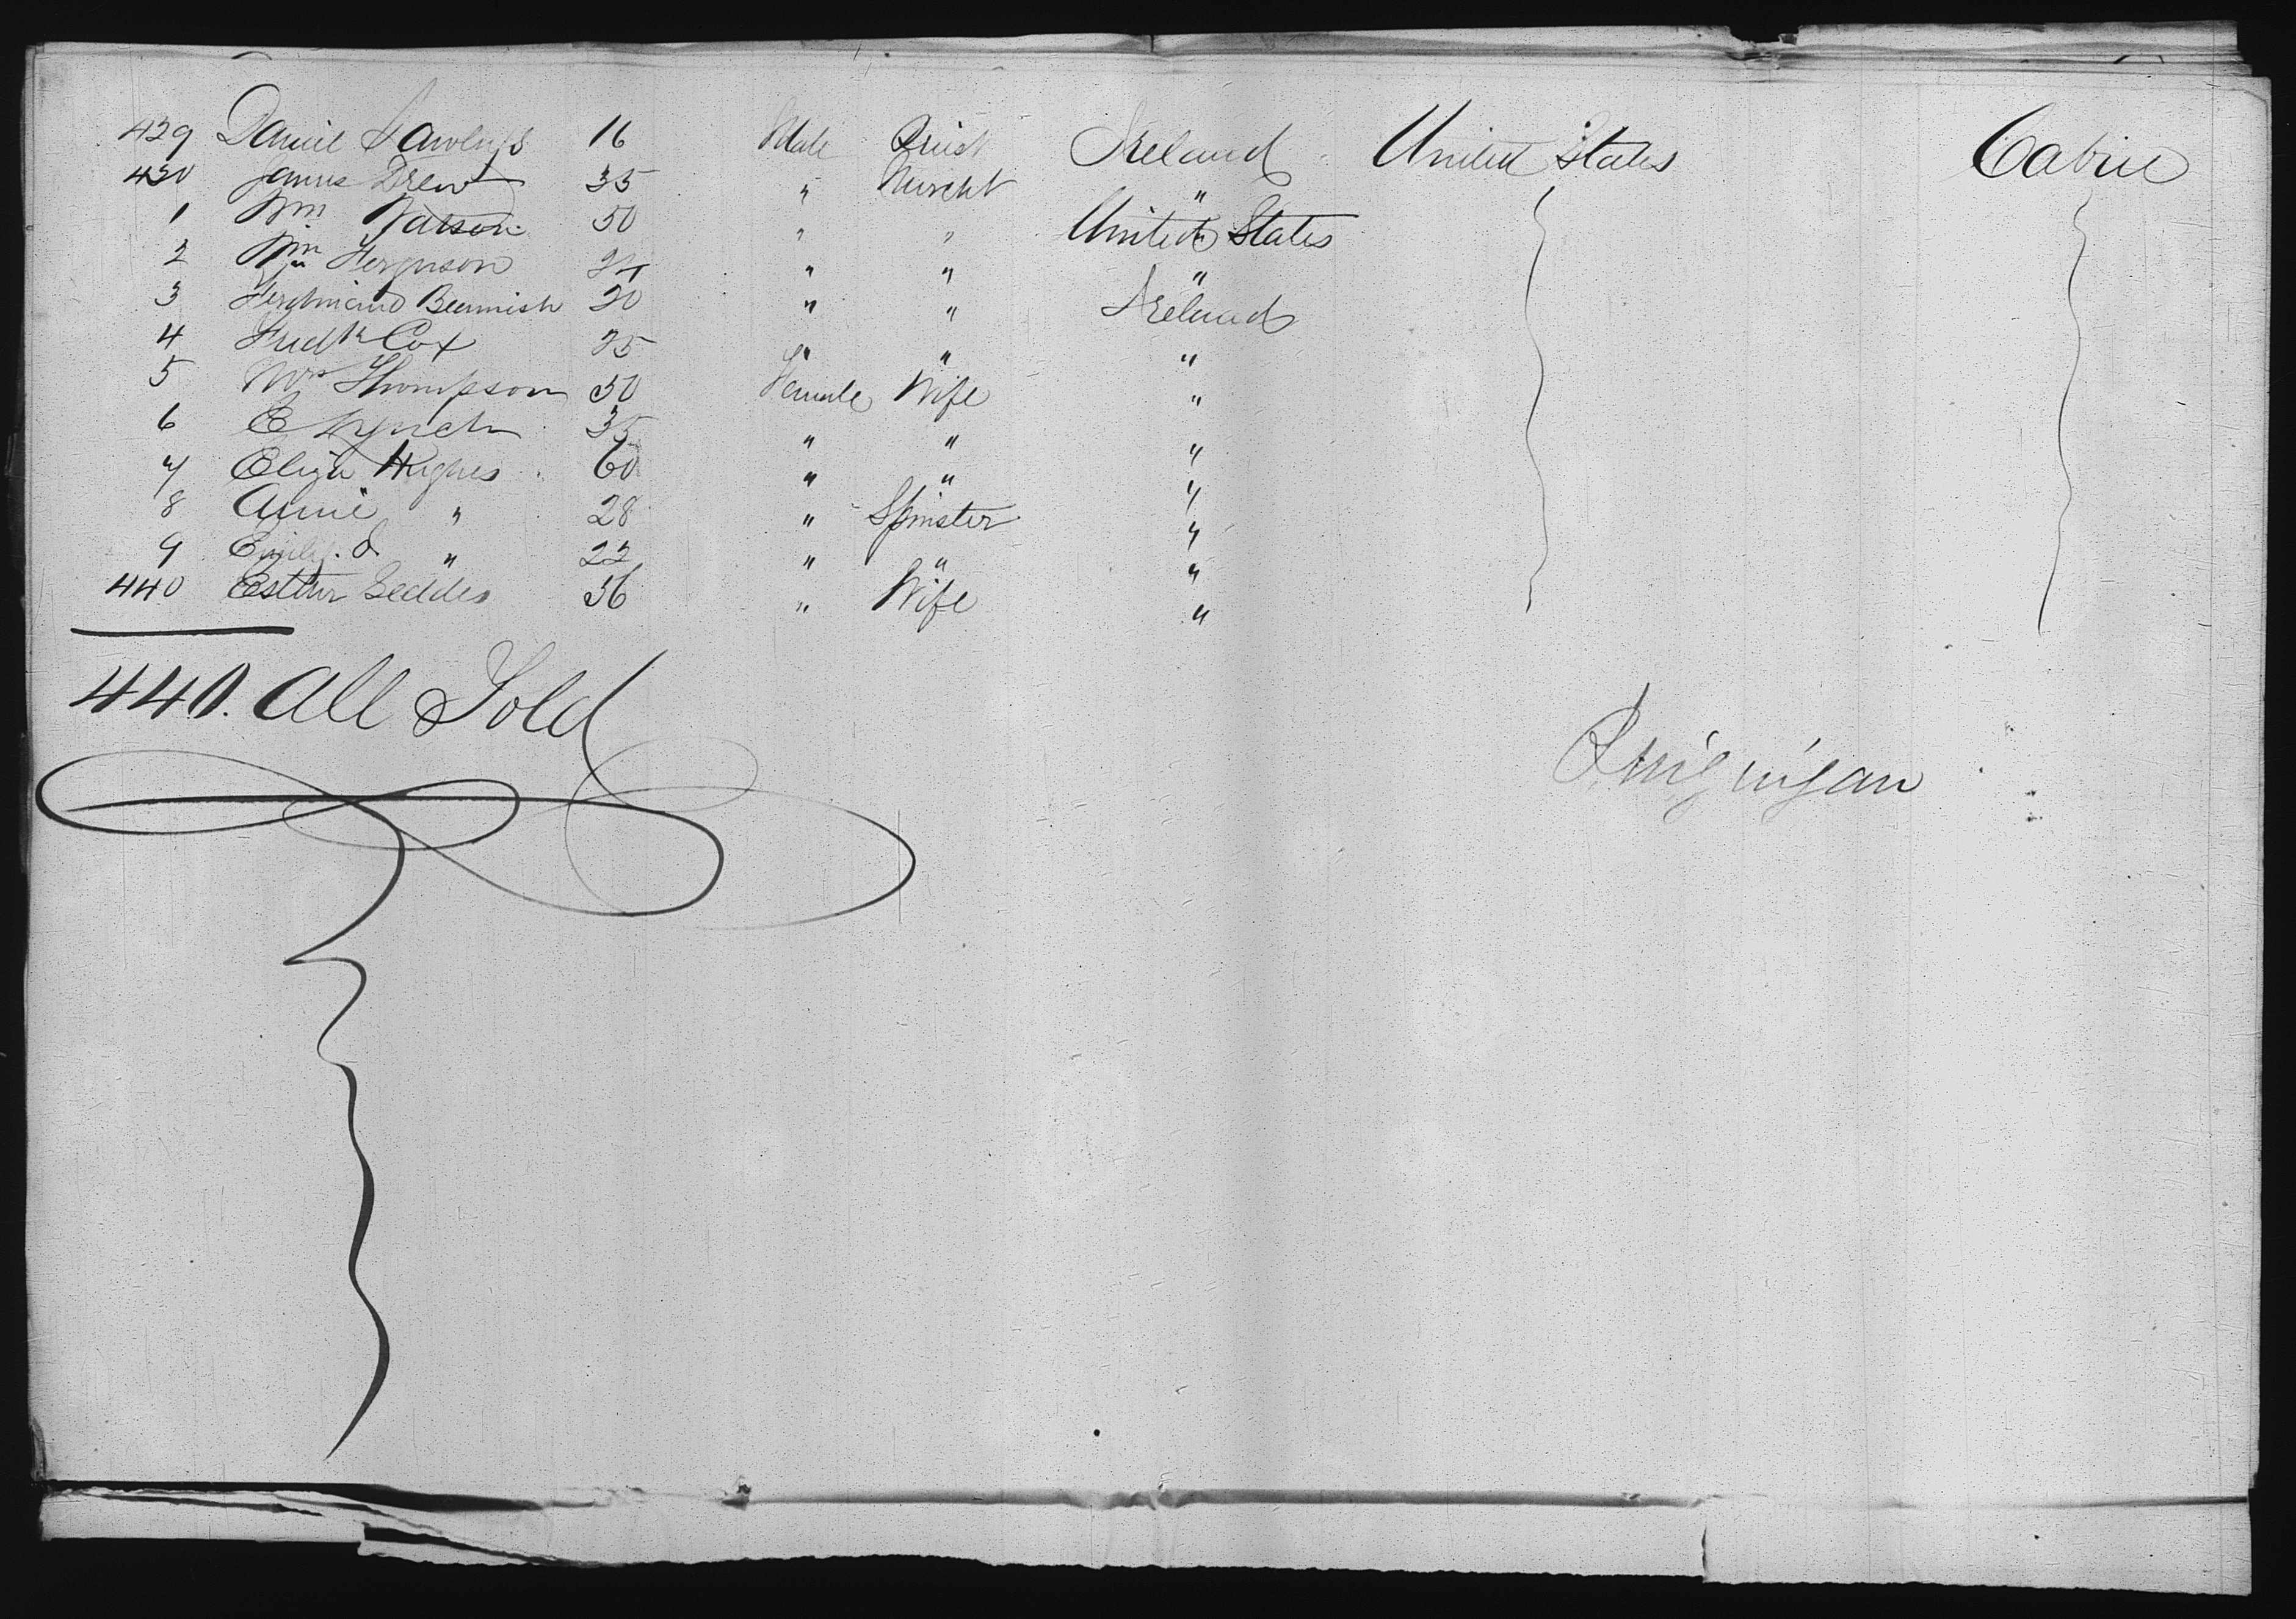 429 Daniel 16 Male Priest Ireland United States Cabin
430 James Drew 35 " Mercht "
1 Wm Watson 50 " " United States
2 Wm Ferguson 24 " " "
3 Ferdinand Beamish 20 " " Ireland
4 Fredk Cox 25 " " "
5 Mrs Thompson 50 Female Wife "
6 E Lynch 35 " " "
7 Eliza Hughes 60 " " "
8 Annie " 28 " Spinster "
9 Emily. & " 22 " " "
440 Esther Geddes 36 " Wife "
440. All Told